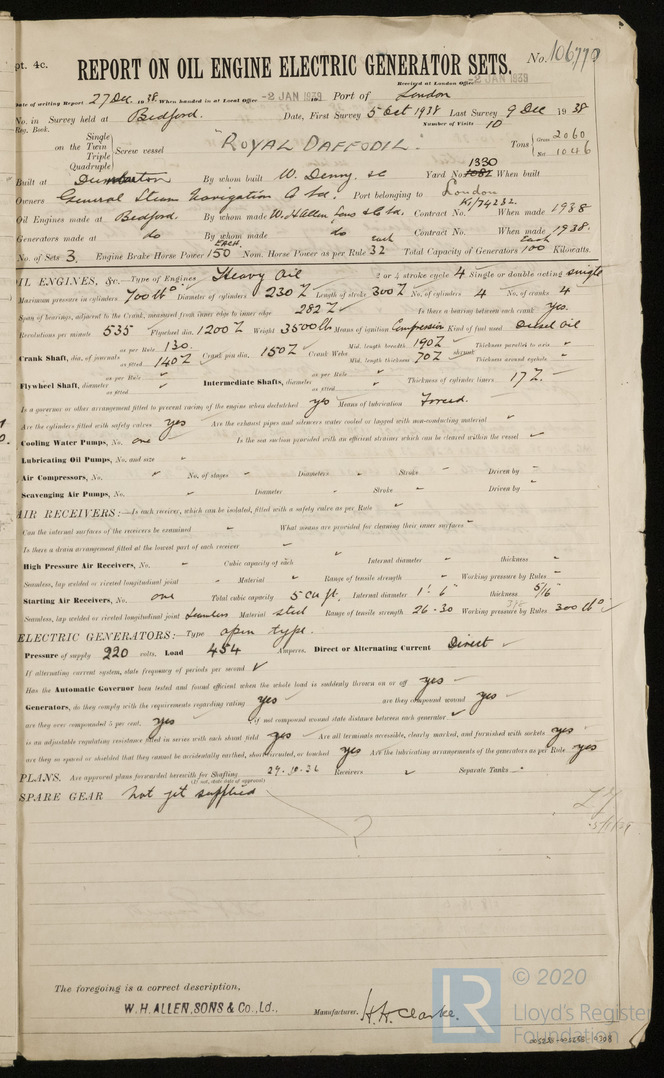 pt. 4c.
REPORT ON OIL ENGINE ELECTRIC GENERATOR SETS.
No. 106770
Received at London Office -2 JAN 1939
Date of writing Report 27 Dec. 1938 When handed in at Local Office -2 JAN 1939 Port of London
No. in Survey held at Bedford. Date, First Survey 5 Oct 1938 Last Survey 9 Dec 1938
Reg. Book. Number of Visits 10
Single
on the Twin
Triple
Quadruple
Screw vessel "ROYAL DAFFODIL." Tons Gross 2060
Net 1046
Built at Dumbarton By whom built W. Denny. Yard No. 1330 1082 When built
Owners General Steam Navigation Co Ltd. Port belonging to London
Oil Engines made at Bedford. By whom made W.H. Allen, Sons & Co Ltd. Contract No. K1/74232. When made 1938
Generators made at do By whom made do Contract No. When made 1938.
No. of Sets 3. Engine Brake Horse Power EACH 150 Nom. Horse Power as per Rule each 32 Total Capacity of Generators Each 100 Kilowatts.
OIL ENGINES, &c.—Type of Engines Heavy Oil 2 or 4 stroke cycle 4 Single or double acting single
Maximum pressure in cylinders 700 lb□" Diameter of cylinders 230 Length of stroke 300 No. of cylinders 4 No. of cranks 4
Span of bearings, adjacent to the Crank, measured from inner edge to inner edge 282 Is there a bearing between each crank yes.
Revolutions per minute 535 Flywheel dia. 1200 Weight 3500 lb Means of ignition Compression Kind of fuel used Diesel Oil
Crank Shaft, dia. of journals as per Rule 130. as fitted 140 Crank pin dia. 150 Crank Webs Mid. length breadth 190 Mid. length thickness 70 shrunk Thickness parallel to axis Thickness around eyehole
Flywheel Shaft, diameter as per Rule as fitted Intermediate Shafts, diameter as per Rule as fitted Thickness of cylinder liners 17
Is a governor or other arrangement fitted to prevent racing of the engine when declutched yes Means of lubrication Forced.
Are the cylinders fitted with safety valves yes Are the exhaust pipes and silencers water cooled or lagged with non-conducting material
Cooling Water Pumps, No. one Is the sea suction provided with an efficient strainer which can be cleared within the vessel
Lubricating Oil Pumps, No. and size
Air Compressors, No. No. of stages Diameters Stroke Driven by
Scavenging Air Pumps, No. Diameter Stroke Driven by
AIR RECEIVERS:—Is each receiver, which can be isolated, fitted with a safety valve as per Rule
Can the internal surfaces of the receivers be examined What means are provided for cleaning their inner surfaces
Is there a drain arrangement fitted at the lowest part of each receiver
High Pressure Air Receivers, No. Cubic capacity of each Internal diameter thickness
Seamless, lap welded or riveted longitudinal joint Material Range of tensile strength Working pressure by Rules
Starting Air Receivers, No. one Total cubic capacity 5 cu ft. Internal diameter 1'-6" thickness 5/16 3/8
Seamless, lap welded or riveted longitudinal joint Seamless Material steel Range of tensile strength 26-30 Working pressure by Rules 300 lb□"
ELECTRIC GENERATORS:—Type open type.
Pressure of supply 220 volts. Load 454 Amperes. Direct or Alternating Current Direct
If alternating current system, state frequency of periods per second
Has the Automatic Governor been tested and found efficient when the whole load is suddenly thrown on or off yes
Generators, do they comply with the requirements regarding rating yes are they compound wound yes
are they over compounded 5 per cent. yes if not compound wound state distance between each generator
is an adjustable regulating resistance fitted in series with each shunt field yes Are all terminals accessible, clearly marked, and furnished with sockets yes
are they so spaced or shielded that they cannot be accidentally earthed, short circuited, or touched yes Are the lubricating arrangements of the generators as per Rule yes
PLANS. Are approved plans forwarded herewith for Shafting 29.10.36 Receivers Separate Tanks
(If not, state date of approval)
SPARE GEAR Not yet supplied
The foregoing is a correct description,
W. H. ALLEN, SONS & Co., Ld., Manufacturer. H. H. Clarke.
LR
© 2020
Lloyd's Register
Foundation